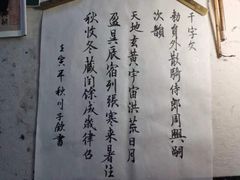 千字文
勅員外散騎侍郎周興嗣
次韻
天地玄黃宇宙洪荒日月
盈昃辰宿列張寒来暑往
秋收冬藏閏餘成歲律吕
壬寅年秋月子欽書